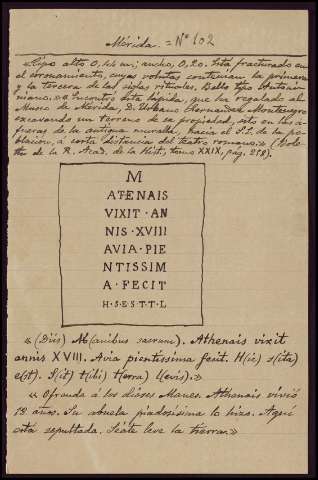 Mérida. = Nº 102
«Cipo alto 0,45 m; ancho, 0,20. Está fracturado en
el coronamiento, cuyas volutas contenían la primera
y la tercera de las siglas rituales. Bello tipo Antoni-
niano. «Encontró esta lápida, que ha regalado al
Museo de Mérida, D. Urbano Chernandez Montenegro
excavando un terreno de su propiedad, sito en las a-
fueras de la antigua muralla, hacia el S.E. de la po-
blación, á corta distancia del teatro romano.» (Bole-
tín de la R. Acad. de la Hist., tomo XXIX, pág. 258).
M
ATENAIS
VIXIT·AN
NIS·XVIII
AVIA·PIE
NTISSIM
A·FECIT
H·S·E·S·T·T·L
«(Diis) M(anibus sacrum). Athenais vixit
annis XVIII. Avia pientissima fecit. H(ic) s(ita)
e(st). S(it) t(ibi) t(erra) l(evis).»
«Ofrenda á los dioses Manes. Athenais vivió
18 años. Su abuela piadosísima lo hizo. Aquí
está sepultada. Séate leve la tierra.»